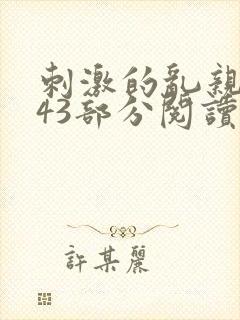 刺激的亂親
43部分閱讀
許某麗